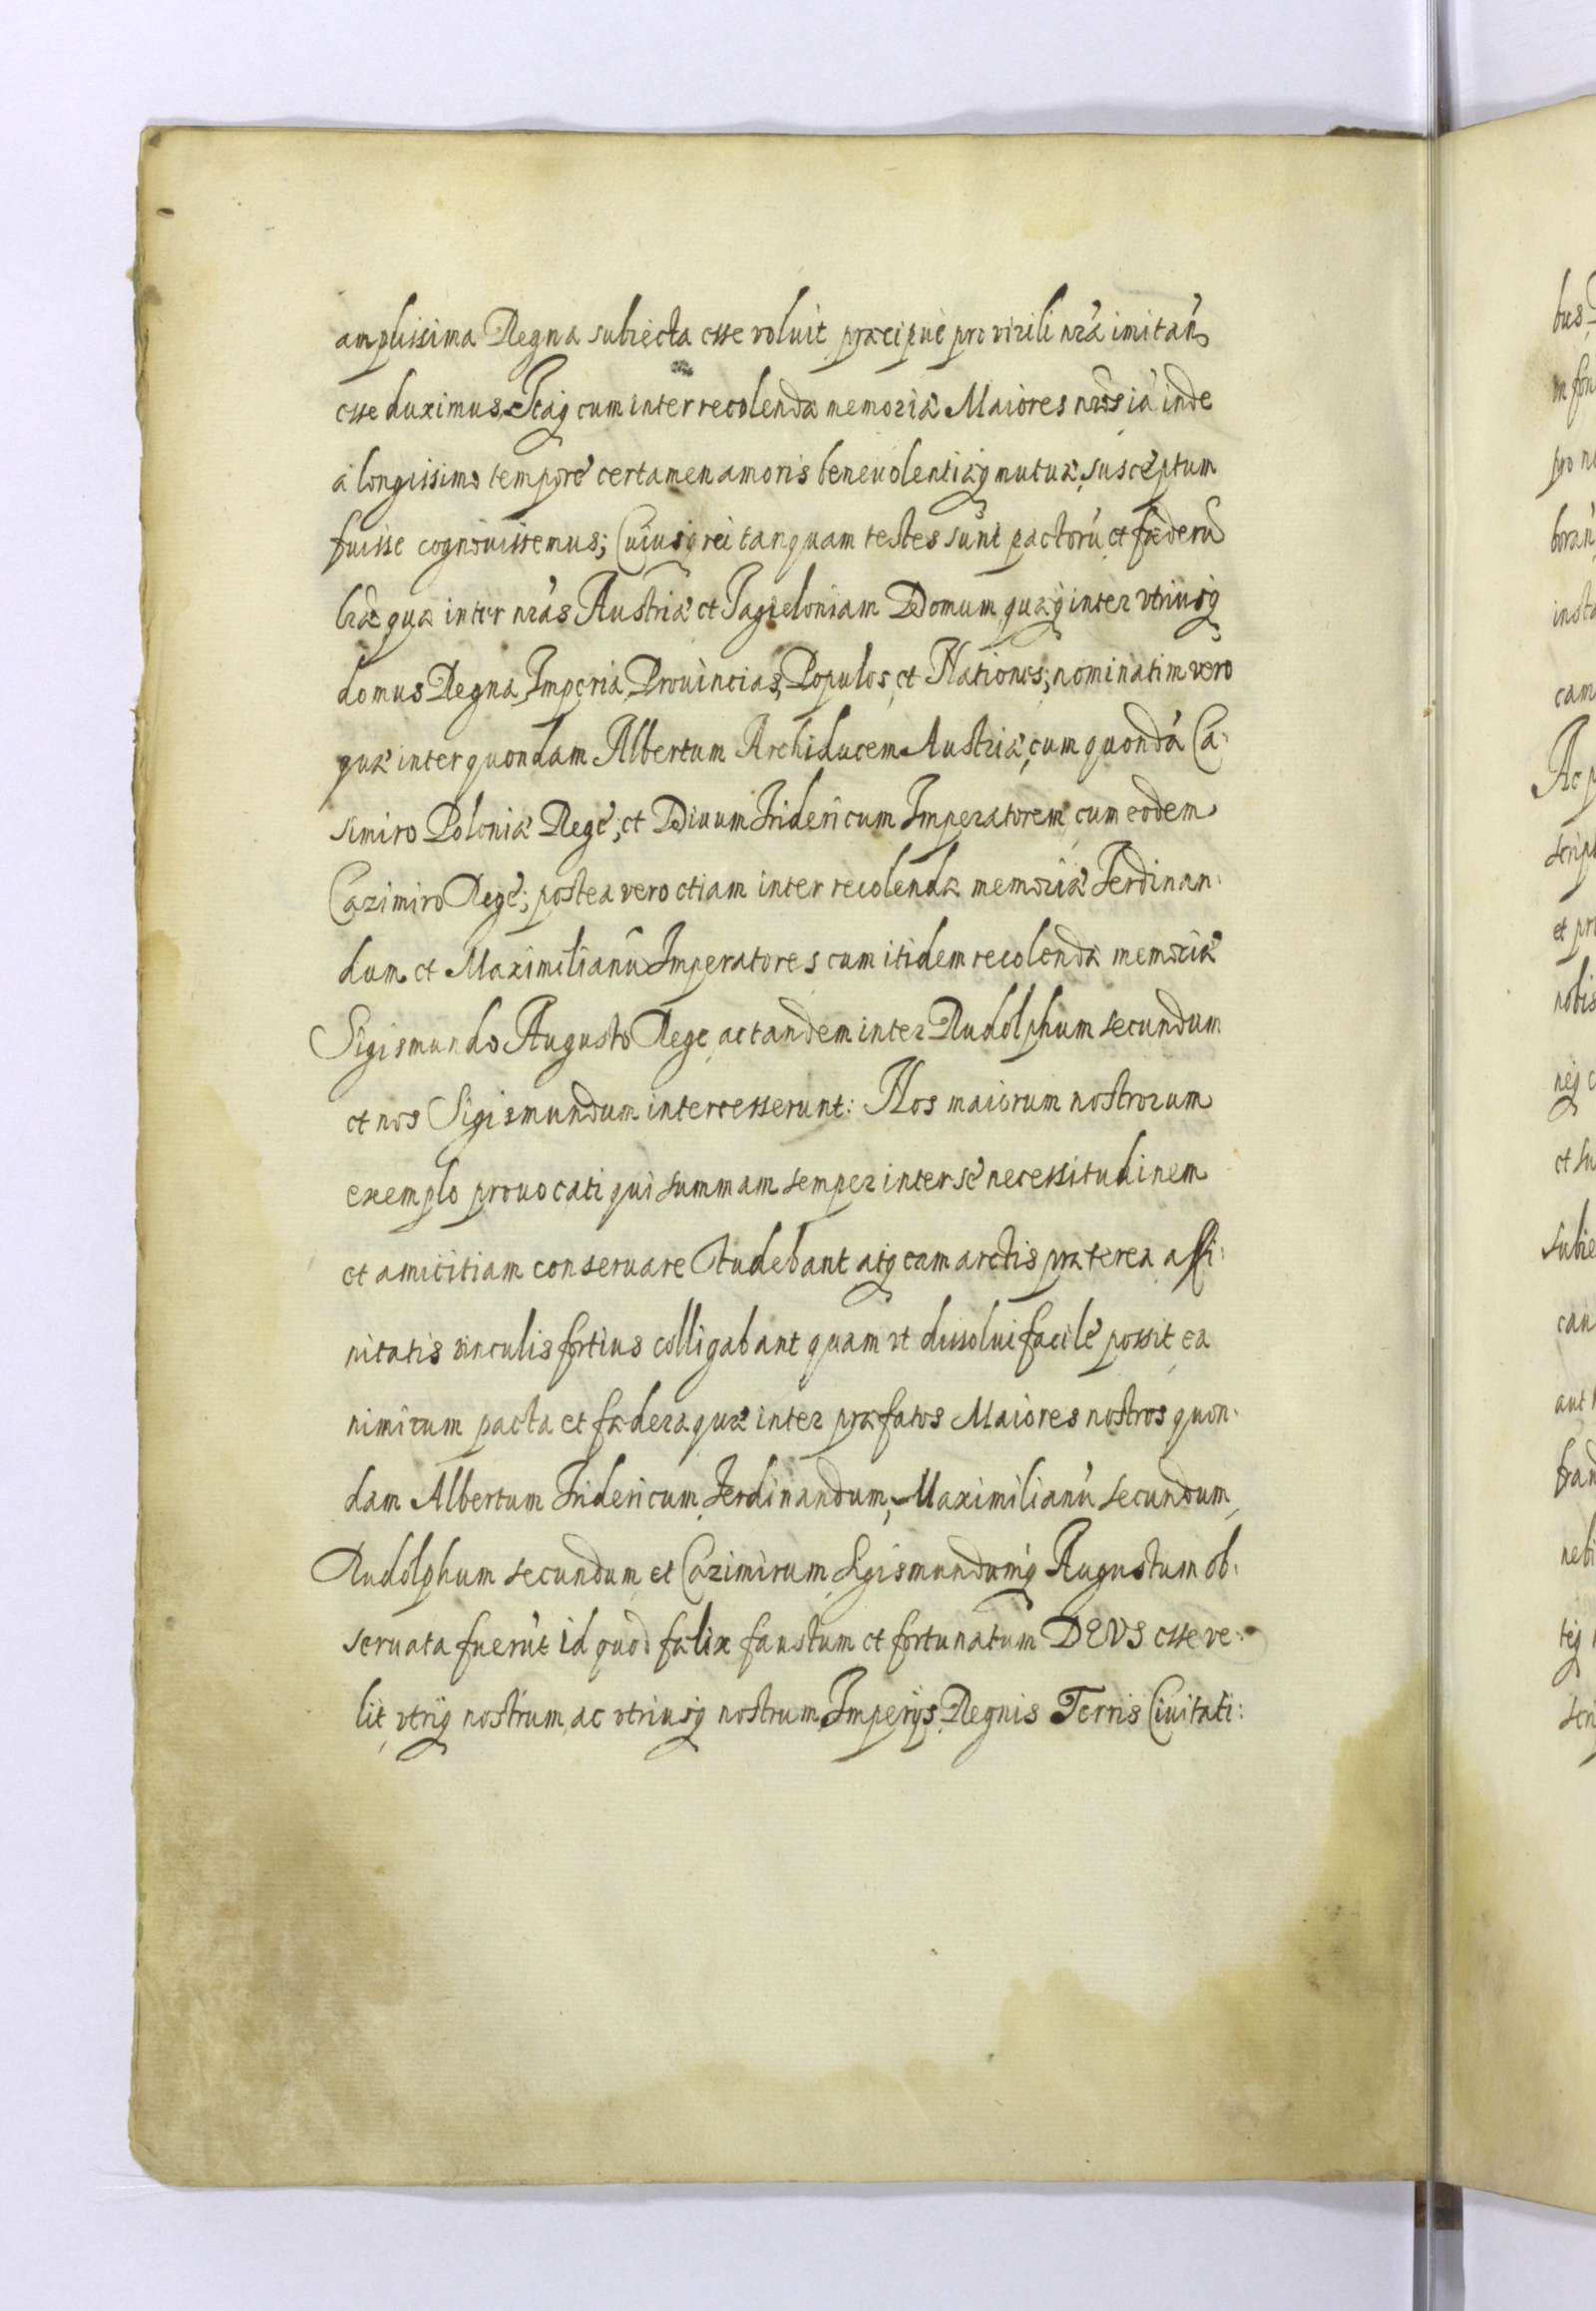 amplissima Regna subiecta esse voluit præcipue pro virili nr̃a imitan̄
esse duximus, Itaq̨ cum inter recolendæ memoriæ Maiores nr̃os iã inde
à longissimo tempore certamen amoris beneuolentiæq̨ mutuæ, susceptum
fuisse cognouissemus; Cuiusq̨ rei tanquam testes sunt pactorũ et fæderũ
lr̃æ quæ inter nr̃as Austriæ et Jagieloniam Domum, quæq̨ inter vtriusq̨
domus Regna, Imperia, Prouincias, Populos, et Nationes; nominatim vero
quæ inter quondam Albertum Archiducem Austriæ, cum quondã Ca:
simiro Poloniæ Rege; et Diuum Fridericum Imperatorem, cum eodem
Cazimiro Rege; postea vero etiam inter recolendæ memoriæ Ferdinan:
dum et Maximilianũ Imperatores cum itidem recolendæ memoriæ
Sigismundo Augusto Rege, ac tandem inter Rudolphum secundum
et nos Sigismundum intercesserunt: Nos maiorum nostrorum
exemplo prouocati qui summam semper inter se necessitudinem
et amicitiam conseruare studebant atq̨ eam arctis præterea affi:
nitatis vinculis fortius colligabant quam vt dissolui facile possit, ea
nimirum pacta et fædera quæ inter præfatos Maiores nostros quon:
dam Albertum Fridericum, Ferdinandum, Maximilianũ secundum,
Rudolphum secundum, et Cazimirum, Sigismundumq̨ Augustum ob:
seruata fuerũt id quod fælix faustum et fortunatum DEVS esse ve:
lit, vtriq̨ nostrum, ac vtriusq̨ nostrum, Imperijs, Regnis Terris Ciuitati: